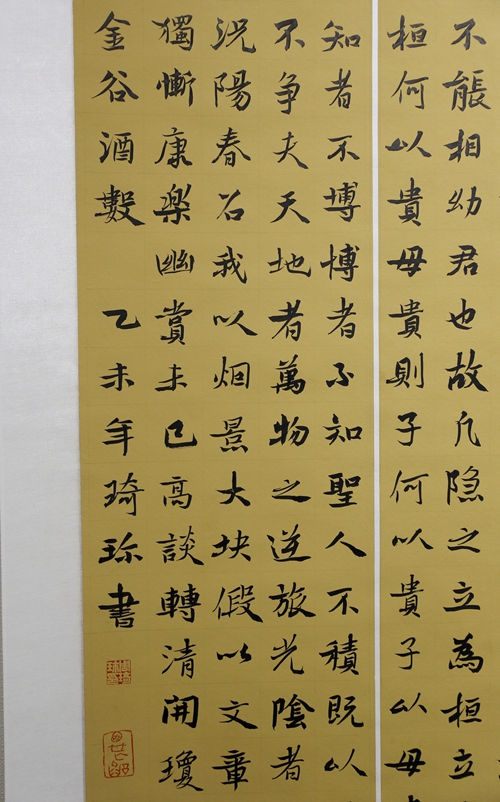 不能相幼君也故凡隐之立為桓立
桓何以貴母貴則子何以貴子以母
知者不博博者不知聖人不積既以
不争夫天地者萬物之逆旅光陰者
況陽春召我以烟景大块假以文章
獨慚康樂幽賞未已高談轉清開瓊
金谷酒數 乙未年琦珎書